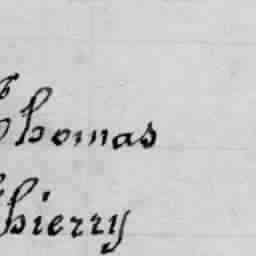 Thomas
Thierry